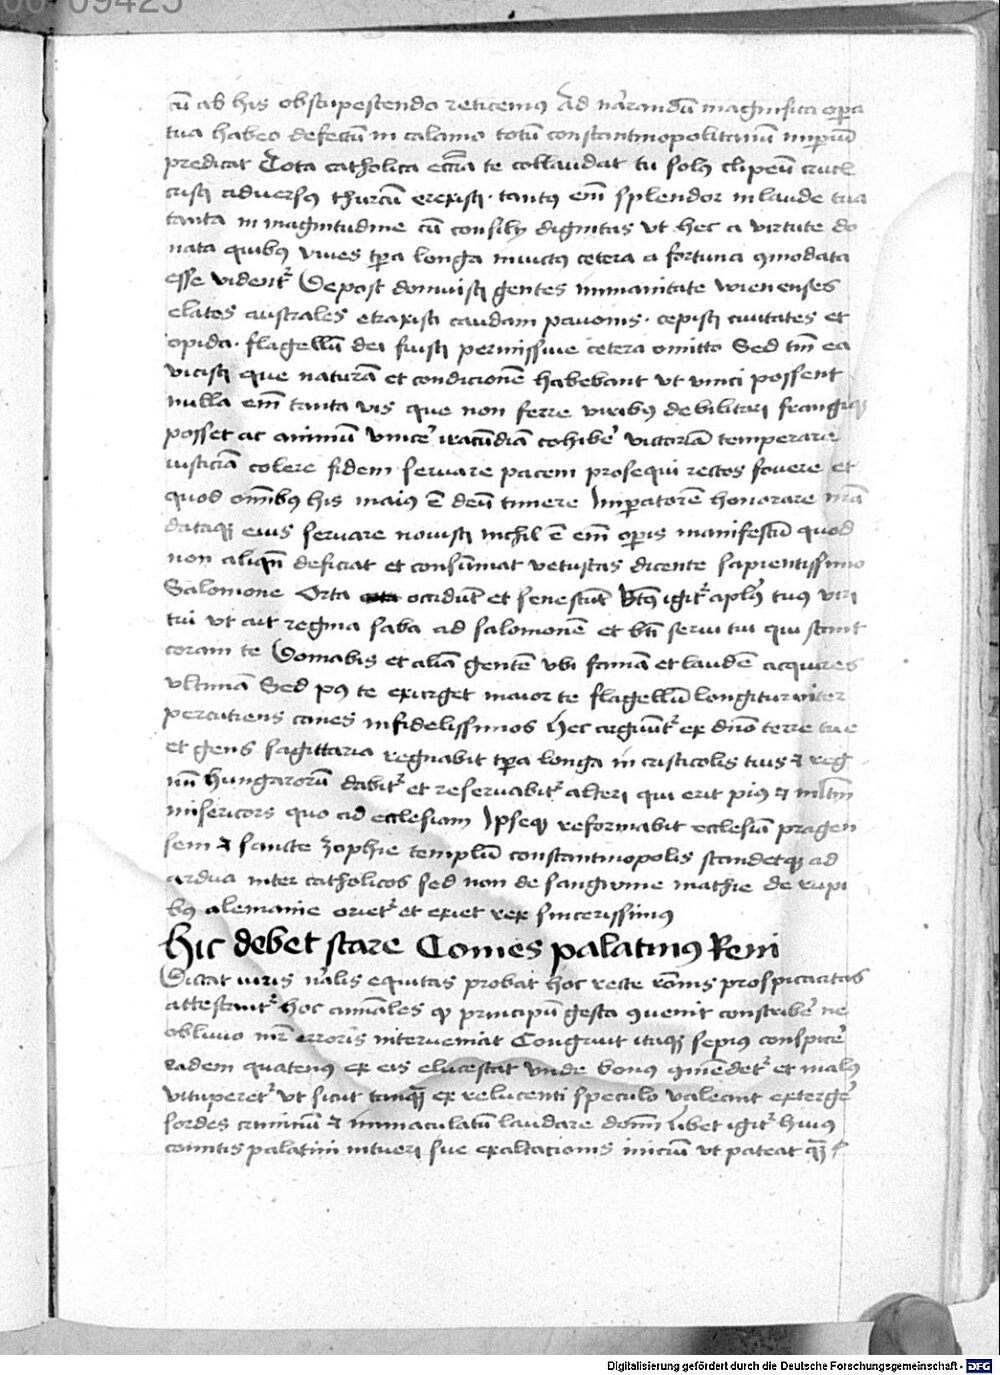 cū ab his obstupescendo reticemꝰ Ad narrandū magnifica opera
tua habeo defectū in calamo totū constantinopolitanū imperiū
predicat Tota catholica eccīa te collaudat tu solꝰ clipeū
cristi adversꝰ thurcū erexisti · tantꝰ em̄ splendor in laude tua
tanta in magnitudine cū consilij dignitas ut hec a virtute do
nata quibꝰ vives tp̄a longa invictꝰ cetera a fortuna ꝯmodata
esse videntᷣ Depost domuisti gentes immanitate wienenses
elatos australes etraxisti caudam pavonis · cepisti civitates et
opida · flagellū dei fuisti permissive cetera omitto Sed tm̄ ea
vicisti que naturā et condicionē habebant ut vinci possent
nulla em̄ tanta vis que non ferre viribꝰ debilitari frangiqꝫ
posset ac animū vincē iracūdiam cohibē victoriā temperare
iusticiā colere fidem servare pacem prosequi rectos fovere et
quod om̄ibꝰ his maiꝰ ē deū timere Imperatorē honorare man
dataqꝫ eius servare novisti nichil ē em̄ operis manifestū quod
non aliqn̄ deficiat et consūmat vetustas dicente sapientissimo
Salomone Orta occidūt et senescūt Btī igitᷣ aplꝰ tuꝰ viri
tui ut ait regina saba ad salomonē et bt̄i servi tui qui stant
coram te Domabis et aliā gentē ubi famā et laudē acquires
ultimā Sed pꝰ te exurget maior te flagellū longitur
percutiens canes infidelissimos Hec arguūtᷣ ex dn̄o terre tue
et gens sagittaria regnabit tp̄a longa in cristicolis tuis ⁊ reg
nū Hungarorū dabitᷣ et reservabitᷣ alteri qui erit piꝰ ⁊ mltm̄
misericors quo ad ecclesiam Ipseqꝫ reformabit ecclesiā pragen
sem ⁊ sancte Zophie templū constantinopolis standetqꝫ ad
ardua inter catholicos sed non de sangwine mathie de rupi
bꝰ alemanie orietᷣ et exiet rex sincerissimꝰ
Hic debet stare Comes palatinꝰ Reni
Dictat iuris nālis equitas probat hoc recte rōnis prospicacitas
attestantᷣ hoc annales ꝙ principū gesta ꝯvenit conscribē ne
oblivio nr̄ erroris interveniat Congruit itaqꝫ sepius conspicē
eadem quatenꝰ ex eis elucescat unde bonus ꝯmēdetᷣ et malꝰ
vituperetᷣ ut sicut tanqꝫ ex relucenti speculo valeant extergē
sordes criminū ⁊ immaculatū laudare domī libet igitᷣ huiꝰ
comitis palatini intueri sue exaltacionis iniciū ut pateat
Digitalisierung gefördert durch die Deutsche Forschungsgemeinschaft - DFG